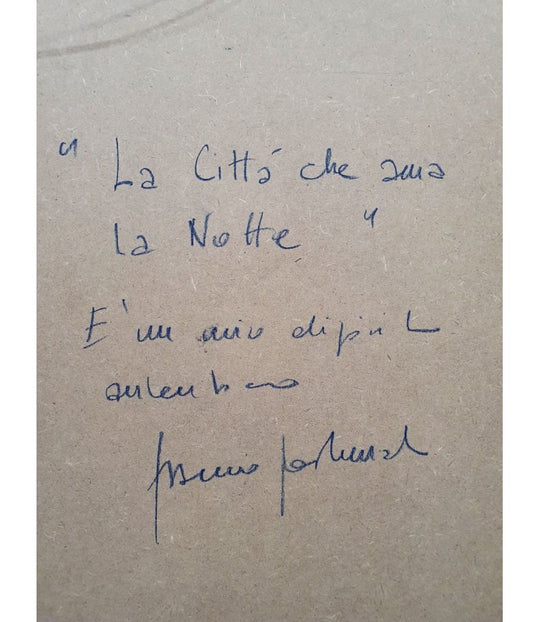 " La Città che ama
la Notte "
E' un mio dipinto
autentico